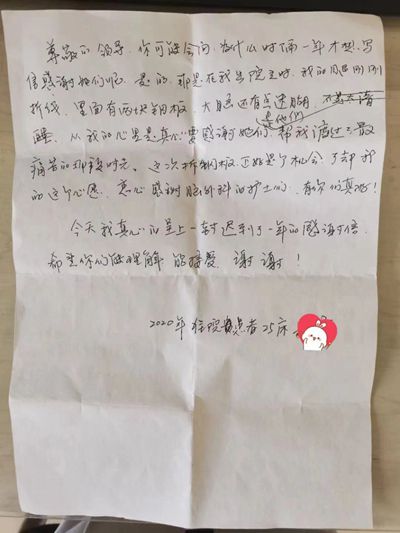 尊敬的领导,你可能会问,为什么时隔一年才想写
信感谢她们呢,是的,那是在我出院之时,我的
拆线,里面有两块钢板,大脑还有点迷糊,不是太清
醒,从我的心里是真心要感谢她们是他们帮我渡过了最
痛苦的那段时光,这次拆钢板,正好是个机会,了却我
的这个心愿,衷心感谢脑外科的护士们,有你们真好!
今天我真心的呈上一封迟到了一年的感谢信,
希望你们能理解 能接受,谢谢!
2020年 住院患者25床